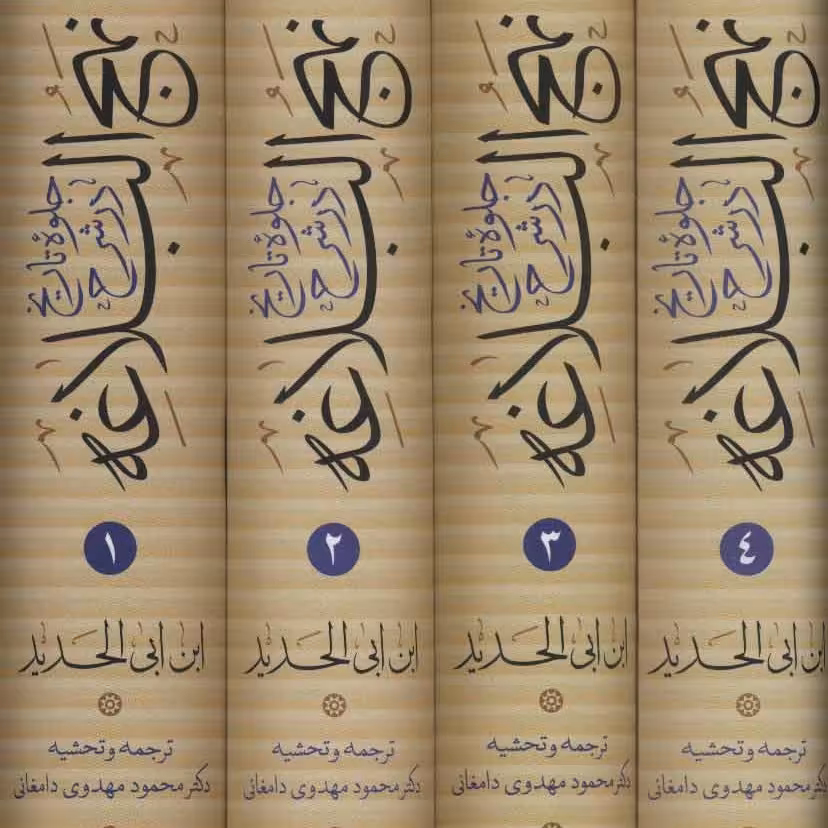 جلوهٔ تاریخ
در شرح
نهج البلاغه
۱
ابن ابی الحدید
ترجمه و تحشیه
دکتر محمود مهدوی دامغانی
جلوهٔ تاریخ
در شرح
نهج البلاغه
۲
ابن ابی الحدید
ترجمه و تحشیه
دکتر محمود مهدوی دامغانی
جلوهٔ تاریخ
در شرح
نهج البلاغه
۳
ابن ابی الحدید
ترجمه و تحشیه
دکتر محمود مهدوی دامغانی
جلوهٔ تاریخ
در شرح
نهج البلاغه
٤
ابن ابی الحدید
ترجمه و تحشیه
دکتر محمود مهدوی دامغانی